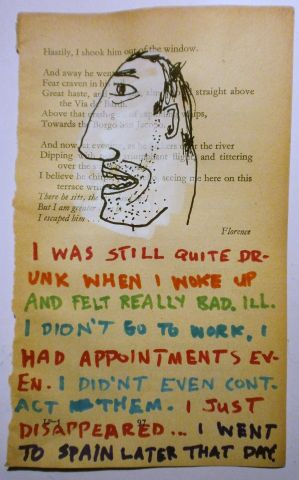 Hastily, I shook him out of the window.
And away he went
Fear craven in his
Great haste, and straight above
the Via de' Bardi.
Above that crash
Towards the Borgo San Jacopo,
And now at evening, as he over the river
Dipping triumphant flight and tittering
over the
I believe he seeing me here on this
terrace
There he sits, the
But I am greater
I escaped him
Florence
I WAS STILL QUITE DR-
UNK WHEN I WOKE UP
AND FELT REALLY BAD. ILL.
I DIDN'T GO TO WORK, I
HAD APPOINTMENTS EV-
EN. I DID'NT EVEN CONT-
ACT THEM. I JUST
DISAPPEARED... I WENT
TO SPAIN LATER THAT DAY.